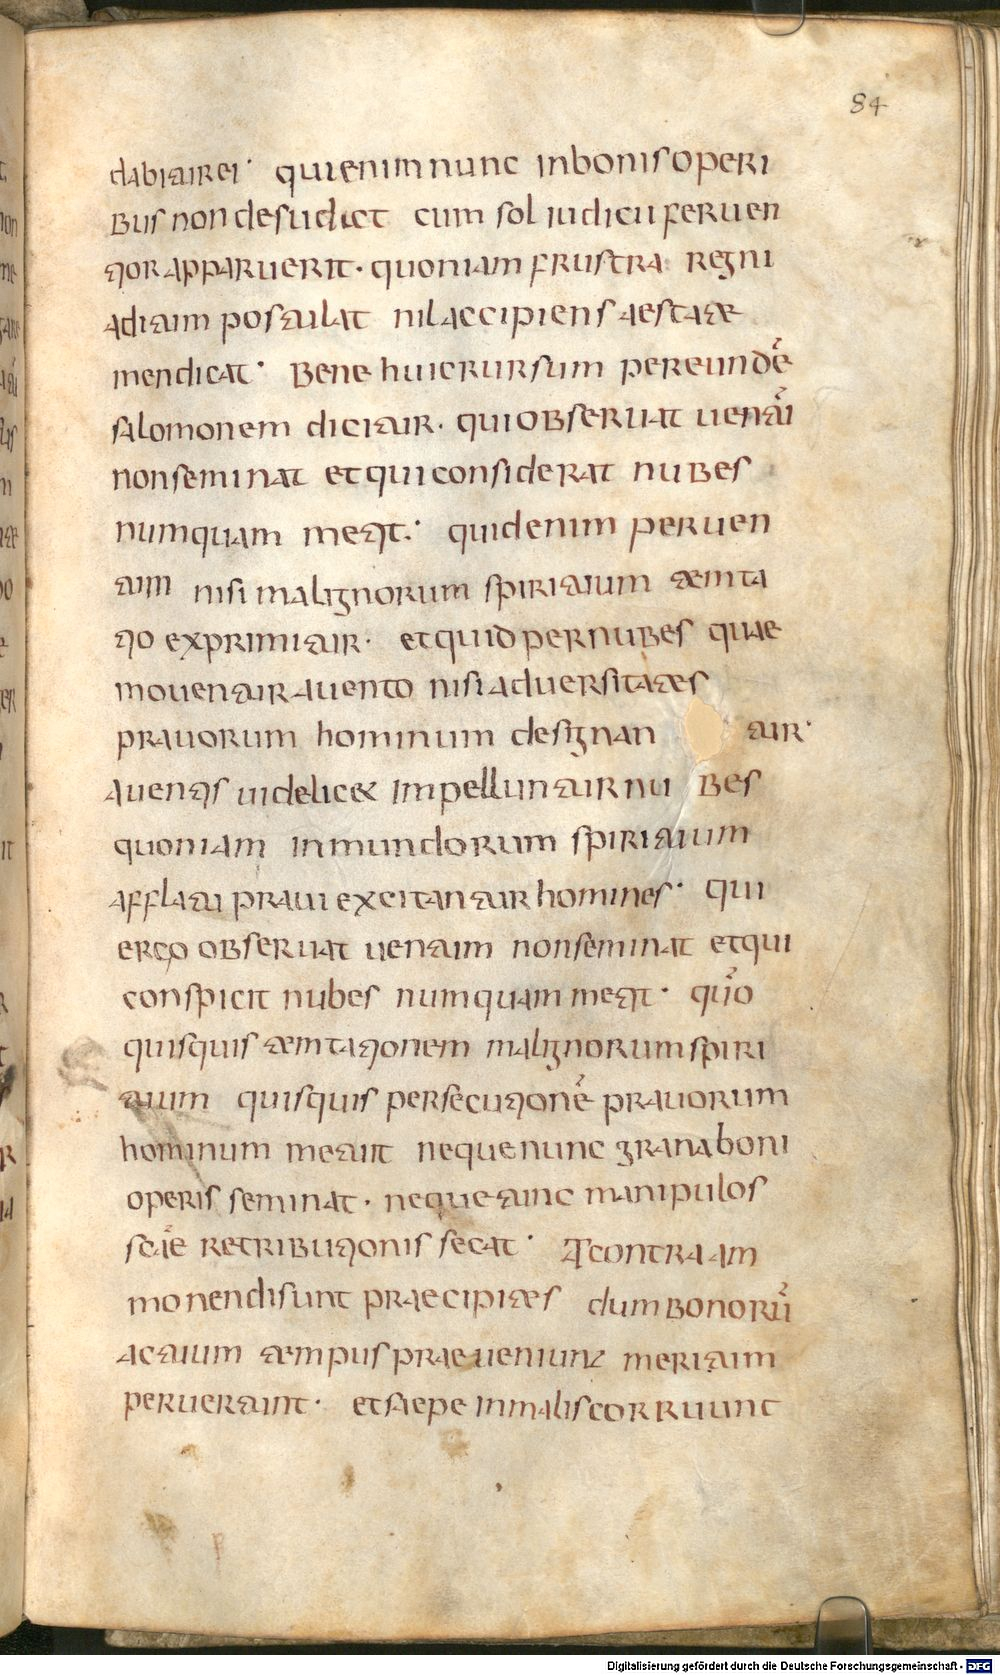 84
dabitur ei· qui enim nunc in bonis operi
bus non desudat cum sol iudicii feruen
tior apparuerit· quoniam frustra regni
aditum postulat nil accipiens aestate
mendicat· Bene huic rursum per eundē
salomonem dicitur· qui obseruat uentū
non seminat et qui considerat nubes
numquam metit· quid enim per uen
tum nisi malignorum spirituum temta
tio exprimitur· et quid per nubes quae
mouentur a uento nisi aduersitates
prauorum hominum designantur·
A uentis uidelicet impelluntur nubes
quoniam inmundorum spirituum
afflatu praui excitantur homines· qui
ergo obseruat uentum non seminat et qui
conspicit nubes numquam metit· quō
quisquis temtationem malignorum spiri
tuum quisquis persecutionē prauorum
hominum metuit neque nunc grana boni
operis seminat· neque tunc manipulos
scāe retributionis secat· At contra am
monendi sunt praecipites dum bonorū
actuum tempus praeueniunt meritum
peruertunt· et saepe in malis corruunt
Digitalisierung gefördert durch die Deutsche Forschungsgemeinschaft - DFG